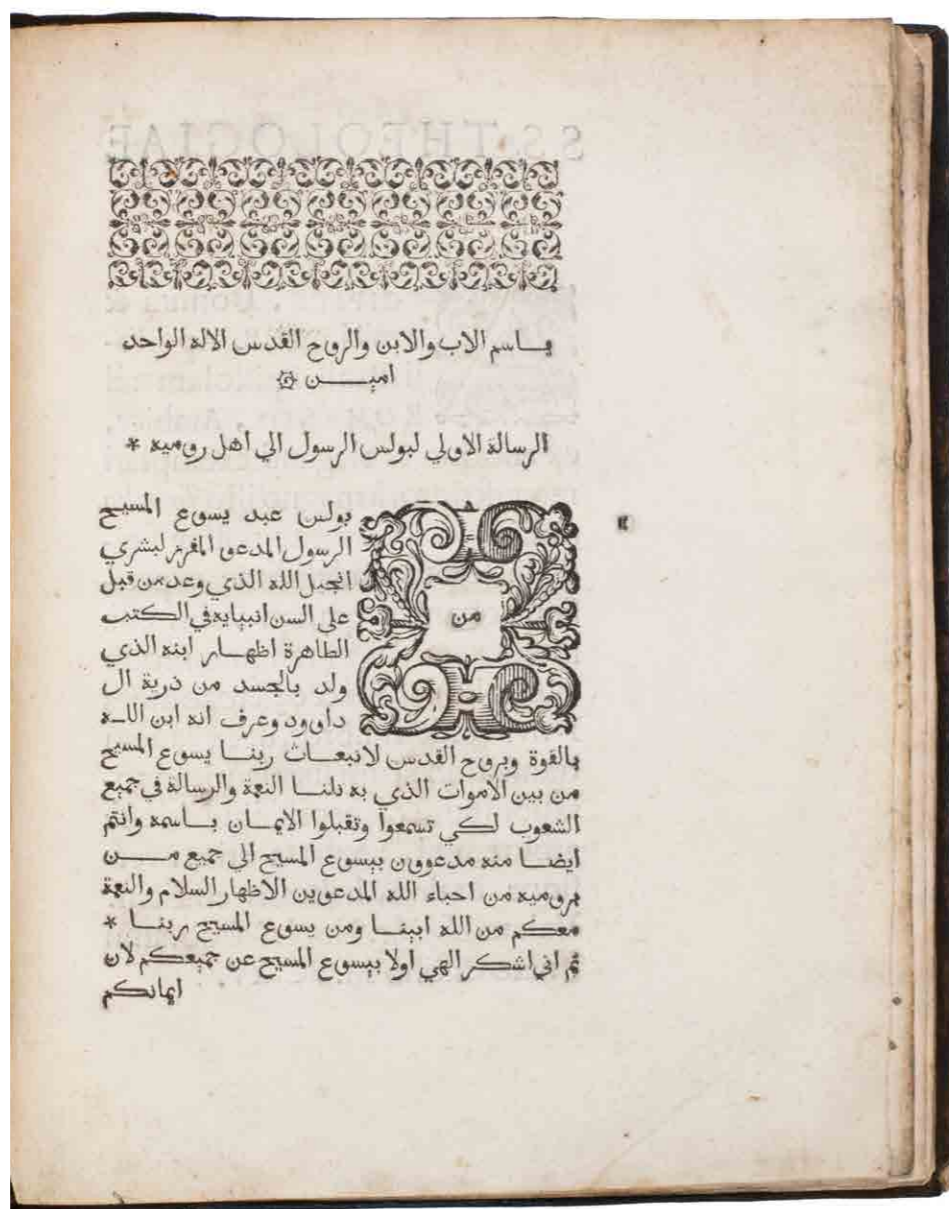 بـاسم الاب والابن والروح القدس الاله الواحد
امين
الرسالة الاولي لبولس الرسول الي اهل روميه *
من
بولس عبد يسوع المسيح
الرسول المدعو المفرز لبشري
انجيل الله الذي وعد من قبل
علي السن انبيايه في الكتب
الطاهرة اظهار ابنه الذي
ولد بالجسد من ذرية ال
داوود وعرف انه ابن الله
بالقوة وبروح القدس لانبعاث ربنا يسوع المسيح
من بين الاموات الذي به نلنا النعمة والرسالة في جميع
الشعوب لكي تسمعوا وتقبلوا الايمان باسمه وانتم
ايضا منه مدعوون بيسوع المسيح الي جميع من
بروميه من احباء الله المدعوين الاظهار السلام والنعمة
معكم من الله ابينا ومن يسوع المسيح ربنا *
ثم اني اشكر الهي اولا بيسوع المسيح عن جميعكم لان
ايمانكم